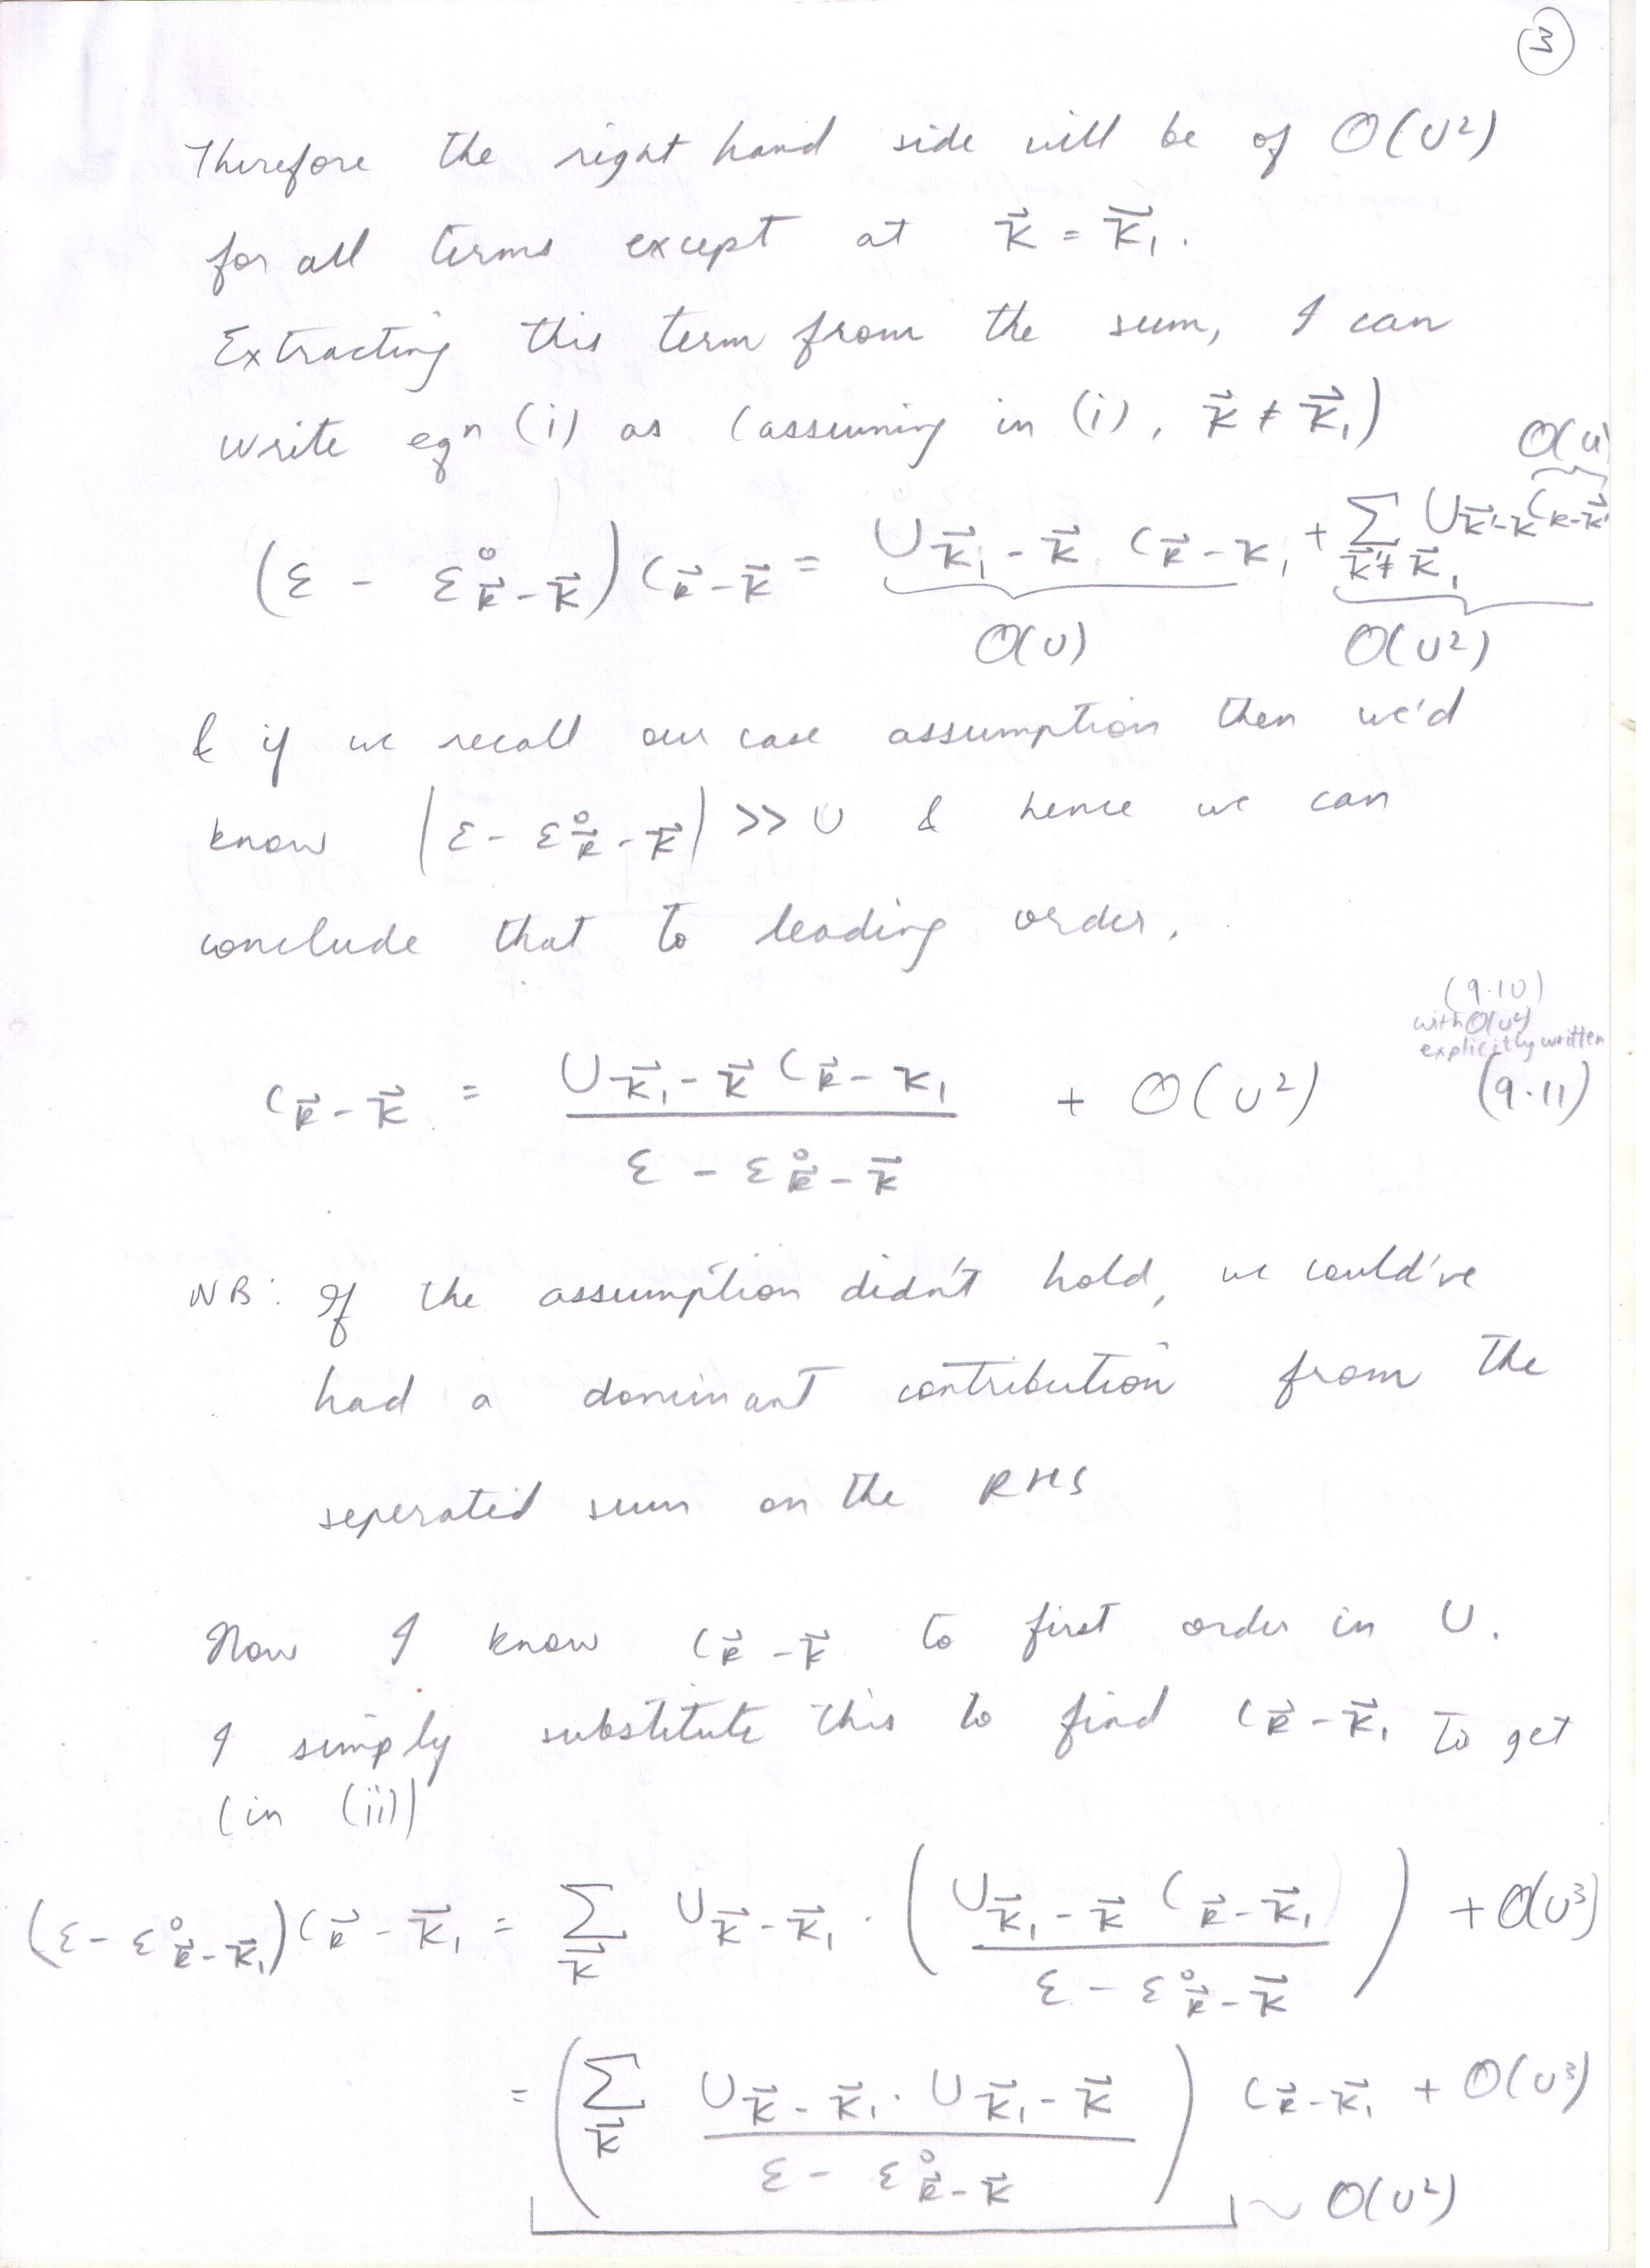 3
Therefore the right hand side will be of O(U²)
for all terms except at K⃗ = K⃗₁.
Extracting this term from the sum, I can
write eqⁿ (i) as (assuming in (i), K⃗ ≠ K⃗₁)
O(U)
(ε - ε⁰_{k⃗-K⃗}) C_{k⃗-K⃗} = U_{K⃗₁-K⃗} C_{k⃗-K₁} + Σ_{K⃗'≠K⃗₁} U_{K⃗'-K} C_{k-K⃗'}
O(U) O(U²)
& if we recall our case assumption then we'd
know |ε - ε⁰_{k⃗-K⃗}| >> U & hence we can
conclude that to leading order,
(9.10)
with O(U²)
explicitly written
C_{k⃗-K⃗} = U_{K⃗₁-K⃗} C_{k⃗-K₁} / ε - ε⁰_{k⃗-K⃗} + O(U²) (9.11)
NB: If the assumption didn't hold, we could've
had a dominant contribution from the
seperated sum on the RHS
Now I know C_{k⃗-K⃗} to first order in U.
I simply substitute this to find C_{k⃗-K⃗₁} to get
(in (ii))
(ε - ε⁰_{k⃗-K⃗₁}) C_{k⃗-K⃗₁} = Σ_{K⃗} U_{K⃗-K⃗₁} · (U_{K⃗₁-K⃗} C_{k⃗-K⃗₁} / ε - ε⁰_{k⃗-K⃗}) + O(U³)
= (Σ_{K⃗} U_{K⃗-K⃗₁} · U_{K⃗₁-K⃗} / ε - ε⁰_{k⃗-K⃗}) C_{k⃗-K⃗₁} + O(U³)
~ O(U²)